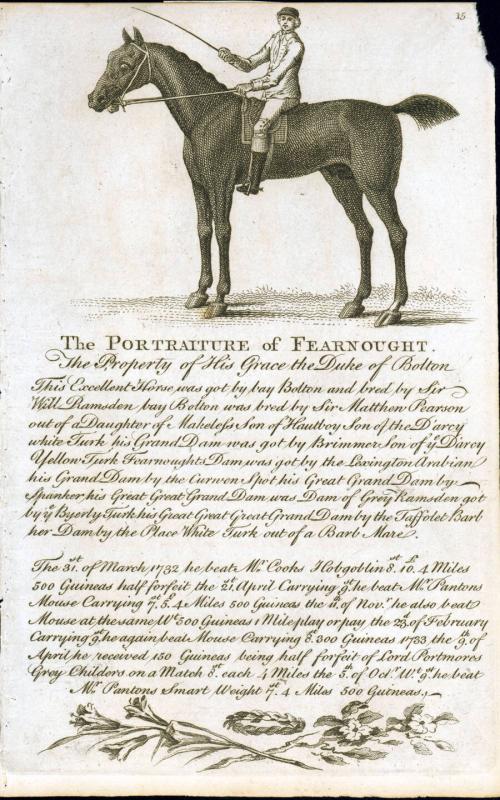 15
The PORTRAITURE of FEARNOUGHT.
The Property of His Grace the Duke of Bolton
This Excellent Horse was got by bay Bolton and bred by Sir
Will Ramsden, bay Bolton was bred by Sir Matthew Pearson
out of a Daughter of Makeless Son of Hautboy Son of the D'arcy
white Turk his Grand Dam was got by Brimmer Son of yᵉ D'arcy
Yellow Turk Fearnoughts Dam was got by the Lexington Arabian
his Grand Dam by the Curwen Spot his Great Grand Dam by
Spanker, his Great Great Grand Dam was Dam of Grey Ramsden got
by yᵉ Byerly Turk his Great Great Great Grand Dam by the Taffolet Barb
her Dam by the Place White Turk out of a Barb Mare.
The 31. of March 1732 he beat Mʳ Cooks Hobgoblin 8ˢᵗ. 10ˡ. 4 Miles
500 Guineas half forfeit the 21ˢᵗ. April Carrying 9ˢᵗ. he beat Mʳ. Pantons
Mouse Carrying 7ˢᵗ. 5ˡ. 4 Miles 500 Guineas the 11ᵗʰ. of Novʳ. he also beat
Mouse at the same Wᵗ. 500 Guineas 1 Mile play or pay. the 23ᵈ. of February
Carrying 9ˢᵗ. he again beat Mouse Carrying 8ˢᵗ. 200 Guineas 1733 the 9ᵗʰ. of
April he received 150 Guineas being half forfeit of Lord Portmores
Grey Childers on a Match 8ˢᵗ. each 4 Miles the 5ᵗʰ. of Octʳ. Wᵗ. 9ˢᵗ. he beat
Mʳ. Pantons Smart Weight 7ˢᵗ. 4 Miles 500 Guineas.